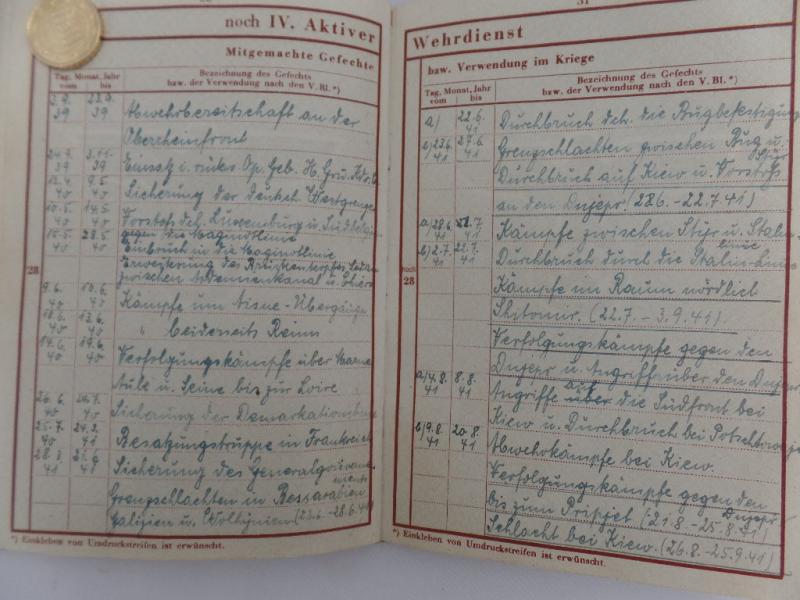 noch IV. Aktiver
Mitgemachte Gefechte
Tag, Monat, Jahr
vom bis
Bezeichnung des Gefechts
bzw. der Verwendung nach den V. Bl. *)
39 39 Abwehrbereitschaft an der
Oberrheinfront
39 39 Einsatz i. rückw. Op. Geb. H. Gru. Kdo. C
12.4. 9.5. Sicherung der deutsch. Westgrenze
40 40
10.5. 14.5. Vorstoß dch. Luxemburg u. Südbelgien
40 40 gegen die Maginotlinie
15.5. 23.5. Einbruch in die Maginotlinie
40 40 Erweiterung des Brückenkopfes Sedan
zwischen Ardennenkanal u. Chiers
28
9.6. 10.6. Kämpfe um Aisne-Übergänge
40 40
10.6. 13.6. " beiderseits Reims
40 40
14.6. 19.6. Verfolgungskämpfe über Marne
40 40
Aube u. Seine bis zur Loire
26.6. 24.7. Sicherung der Demarkationslinie
40 40
25.7. 24.3. Besatzungstruppe in Frankreich
40 41
28.3. 21.6. Sicherung des Generalgouvernements
41 41
Grenzschlachten in Bessarabien
Galizien u. Wolhynien (22.6. - 28.6.41)
*) Einkleben von Umdruckstreifen ist erwünscht.
31
Wehrdienst
bzw. Verwendung im Kriege
Tag, Monat, Jahr
vom bis
Bezeichnung des Gefechts
bzw. der Verwendung nach den V. Bl. *)
a) 22.6. Durchbruch dch. die Bugbefestigung
41
b) 23.6. 27.6. Grenzschlachten zwischen Bug u.
41 41 Styr
Durchbruch auf Kiew u. Vorstoß
an den Dnjepr (28.6. - 22.7.41)
a) 28.6. Kämpfe zwischen Styr u. Stalin-
41 41 linie
b) 2.7. 22.7. Durchbruch durch die Stalin-Linie
41 41
noch
28
Kämpfe im Raum nördlich
Shitomir. (22.7. - 3.9.41)
Verfolgungskämpfe gegen den
Dnjepr u. Angriff über den Dnjepr
a) 4.8. 8.8. Angriffe auf die Südfront bei
41 41
Kiew u. Durchbruch bei
b) 9.8. 20.8. Abwehrkämpfe bei Kiew.
41 41
Verfolgungskämpfe gegen den
Dnjepr
bis zum Pripjet (21.8. - 25.8.41)
Schlacht bei Kiew. (26.8. - 25.9.41)
*) Einkleben von Umdruckstreifen ist erwünscht.